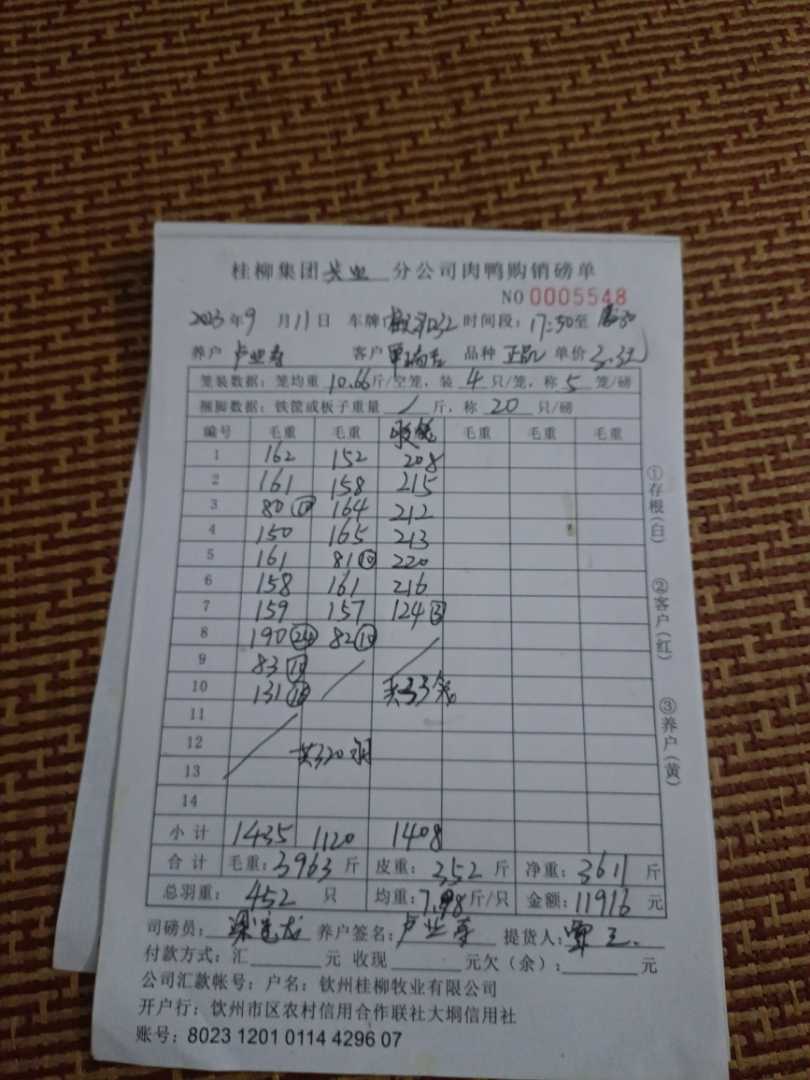 桂柳集团 分公司肉鸭购销磅单
NO 0005548
2023年9月11日 车牌 时间段：17:50至
养户 卢业寿 客户 覃瑞 品种 正品 单价 3.3元
笼装数据：笼均重 10.66斤/空笼，装 4 只/笼，称 5 笼/磅
捆脚数据：铁筐或板子重量 / 斤，称 20 只/磅
编号 毛重 毛重 毛重 毛重 毛重
1 162 152 208
2 161 158 215
3 80 ⑩ 164 212
4 150 165 213
5 161 81 ⑩ 220
6 158 161 216
7 159 157 124 ③
8 190 ㉔ 82 ⑩
9 83 ⑩
10 131 ⑯ 共33笼
11
12 共320羽
13
14
小计 1435 1120 1408
合计 毛重：3963 斤 皮重：352 斤 净重：3611 斤
总羽重：452 只 均重：7.98斤/只 金额：11916 元
司磅员： 养户签名：卢业寿 提货人：覃
付款方式：汇 元 收现 元欠（余）： 元
公司汇款帐号：户名：钦州桂柳牧业有限公司
开户行：钦州市区农村信用合作联社大垌信用社
账号：8023 1201 0114 4296 07
①存根(白)
②客户(红)
③养户(黄)